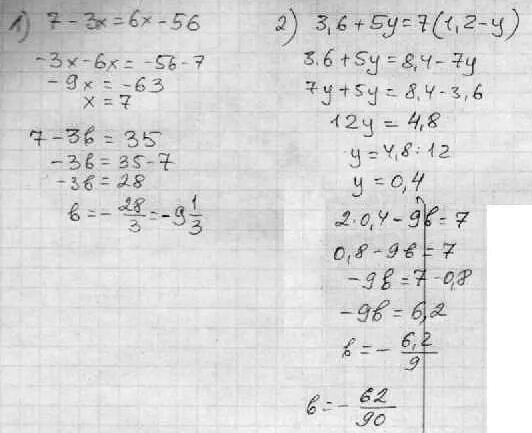 1) 7 - 3x = 6x - 56
-3x - 6x = -56 - 7
-9x = -63
x = 7
7 - 3в = 35
-3в = 35 - 7
-3в = 28
в = - 28/3 = -9 1/3
2) 3,6 + 5y = 7(1,2 - y)
3.6 + 5y = 8,4 - 7y
7y + 5y = 8,4 - 3,6
12y = 4,8
y = 4,8 : 12
y = 0,4
2·0,4 - 9в = 7
0,8 - 9в = 7
-9в = 7 - 0,8
-9в = 6,2
в = - 6,2/9
в = - 62/90